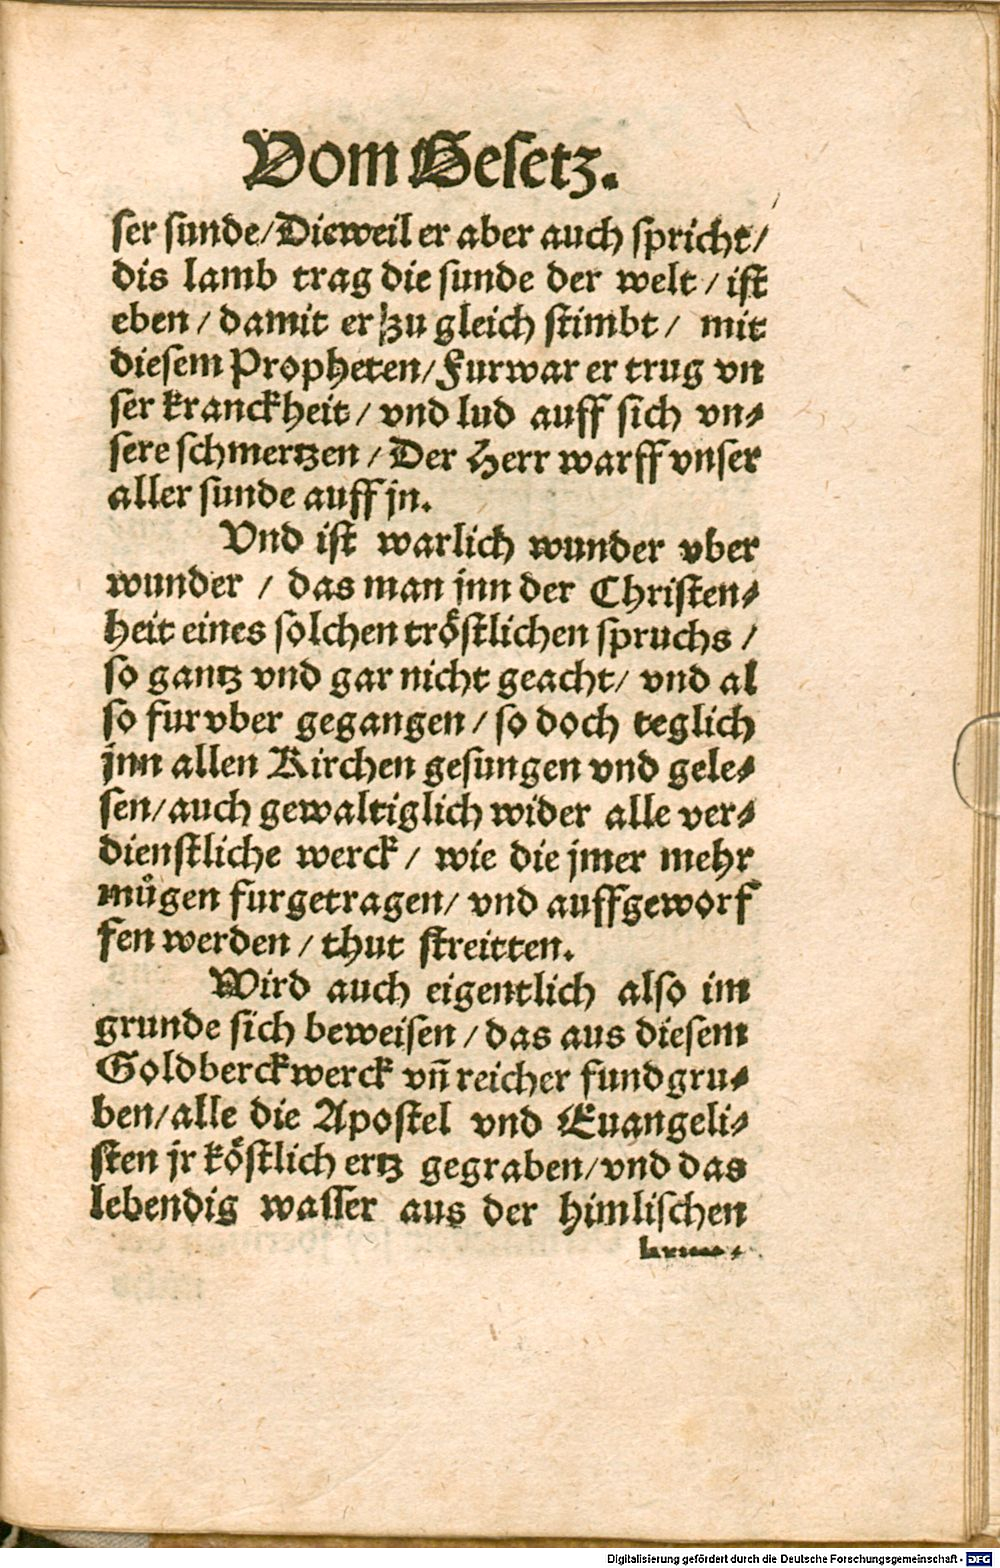 Vom Gesetz.
ser sunde/Dieweil er aber auch spricht/
dis lamb trag die sunde der welt / ist
eben / damit er zu gleich stimbt / mit
diesem Propheten/Furwar er trug vn
ser kranckheit / vnd lud auff sich vn⸗
sere schmertzen / Der Herr warff vnser
aller sunde auff jn.
Vnd ist warlich wunder vber
wunder / das man jnn der Christen⸗
heit eines solchen tröstlichen spruchs /
so gantz vnd gar nicht geacht/ vnd al
so furvber gegangen / so doch teglich
jnn allen Kirchen gesungen vnd gele⸗
sen/auch gewaltiglich wider alle ver⸗
dienstliche werck / wie die jmer mehr
mügen furgetragen/ vnd auffgeworf
fen werden / thut streitten.
Wird auch eigentlich also im
grunde sich beweisen / das aus diesem
Goldberckwerck vñ reicher fundgru⸗
ben/alle die Apostel vnd Euangeli⸗
sten jr köstlich ertz gegraben/vnd das
lebendig wasser aus der himlischen
Digitalisierung gefördert durch die Deutsche Forschungsgemeinschaft - DFG